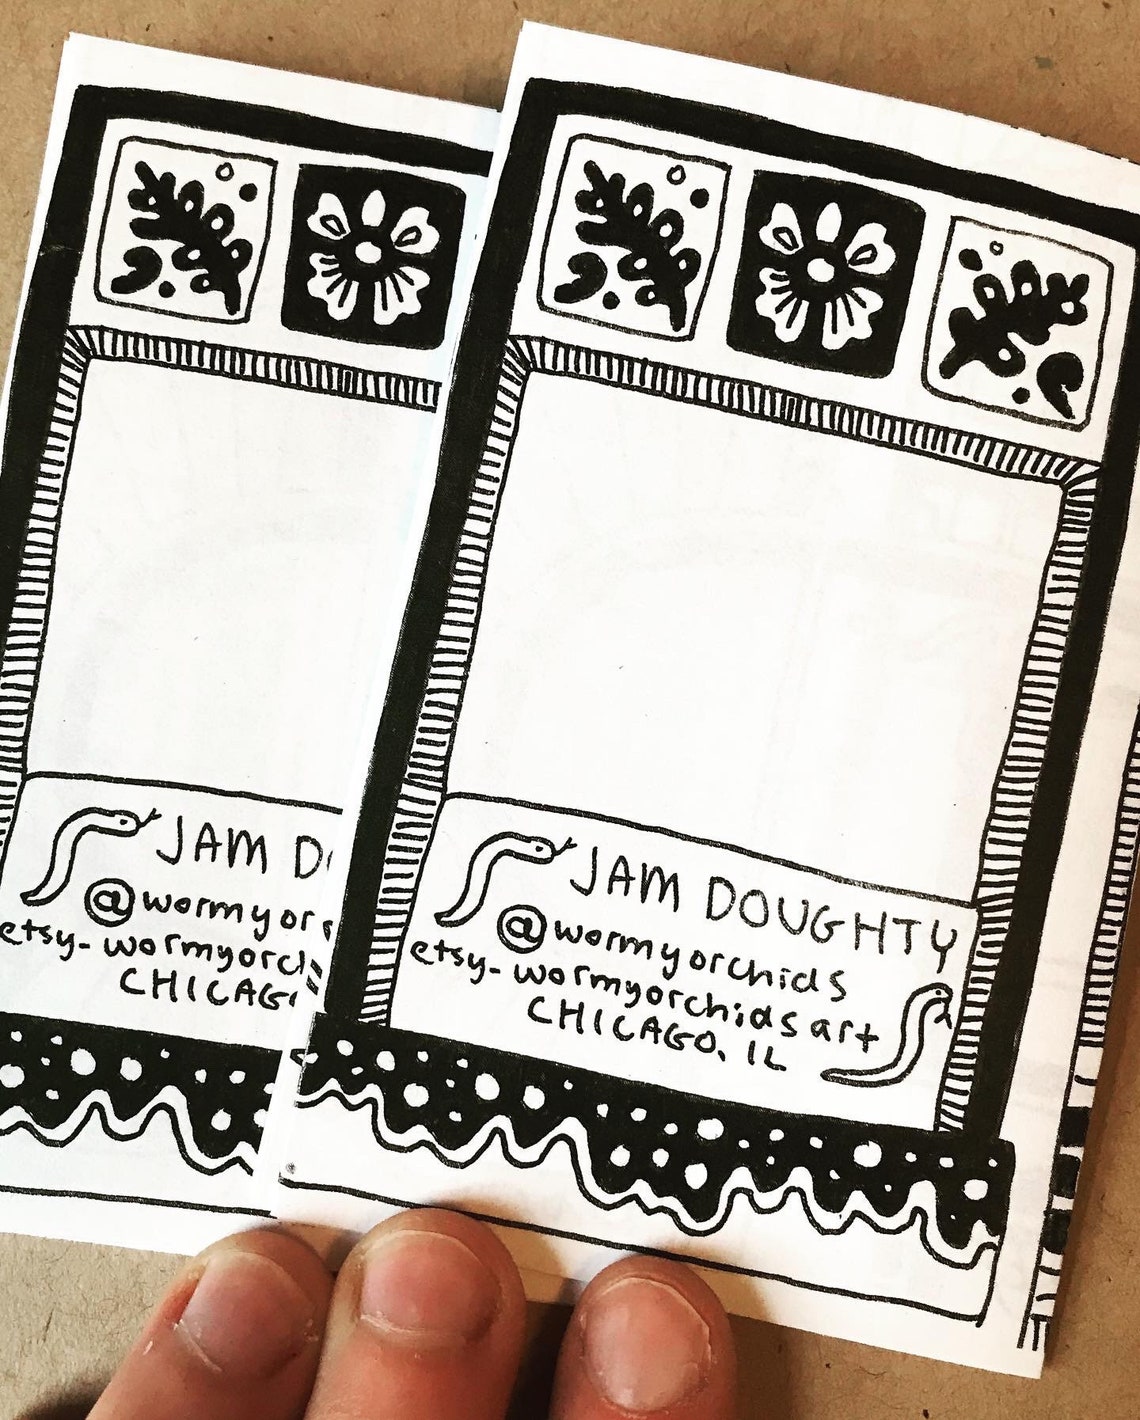 JAM D
@wormyor
etsy-wormyorch
CHICAG
JAM DOUGHTY
@wormyorchids
etsy-wormyorchidsart
CHICAGO, IL